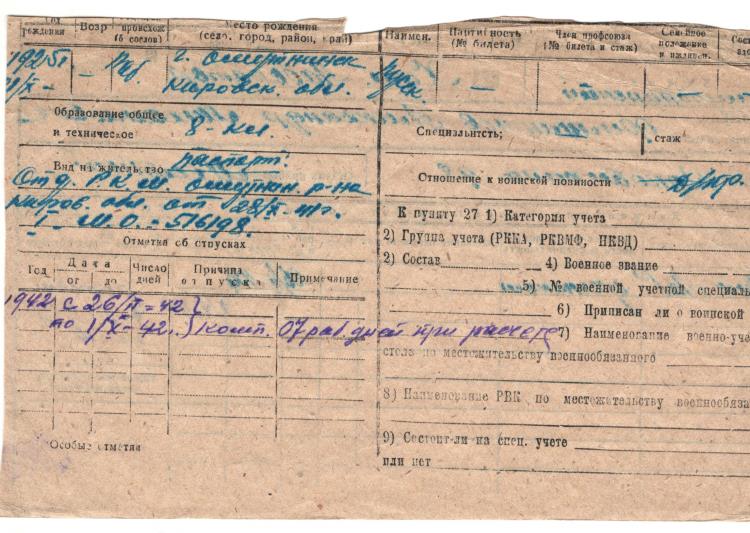 Год рождения Возр происхож (б сослов) Место рождения (село, город, район, край) Наимен. Партийность (№ билета) Член профсоюза (№ билета и стаж) Семейное положение и иждивен.
1925г г. Омутнинск Русск. —
— Раб Кировск. обл.
Образование общее и техническое 8-кл.
Специальнтсть; — стаж
Вид на жительство Паспорт.
Отд. Р.К.М. Омутнин. р-на
Киров. обл. от 28/X-41г.
I-М.О.=516198.
Отношение к воинской повинности
К пункту 27 1) Категория учета
2) Группа учета (РККА, РКВМФ, НКВД)
2) Состав 4) Военное звание
5) № военной учетной специаль
6) Приписан ли о воинской
7) Наименование военно-уче
стола по местожительству военнообязанного
8) Наименование РВК по местожительству военнообяза
9) Состоит-ли на спец. учете
или нет
Отметка об отпусках
Год Дата от до Число дней Причина отпуска Примечание
1942 с 26/IX-42
по 1/X-42г. комп. 07 раб дней при расчете
Особые отметки